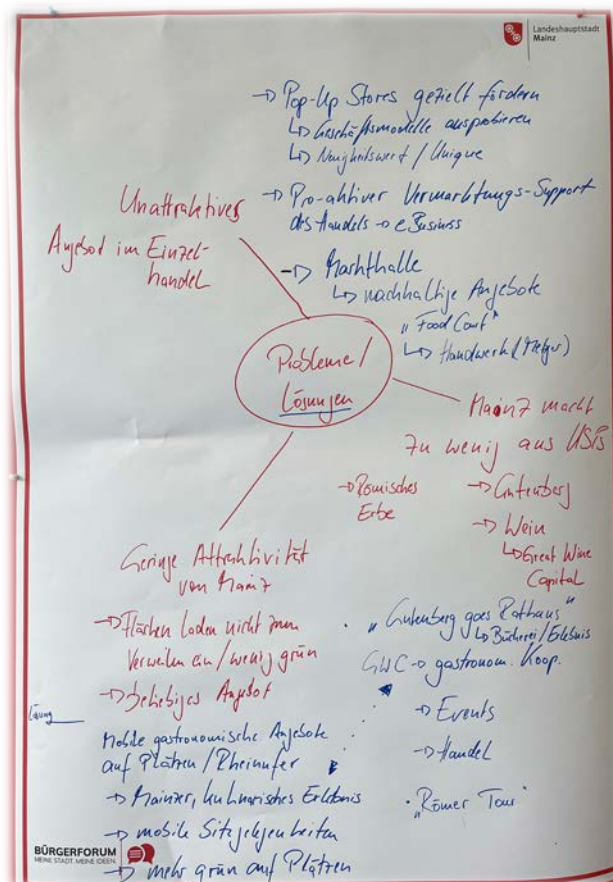 Landeshauptstadt
Mainz
→ Pop-Up Stores gezielt fördern
↳ Geschäftsmodelle ausprobieren
↳ Neuigkeitswert / Unique
→ Pro-aktiver Vermarktungs-Support
des Handels → eBusiness
→ Markthalle
↳ nachhaltige Angebote
"Food Court"
↳ Handwerk (Metzger)
Unattraktives
Angebot im Einzel-
handel
Probleme /
Lösungen
Mainz macht
zu wenig aus USPs
→ Römisches
Erbe
→ Gutenberg
→ Wein
↳ Great Wine
Capital
Geringe Attraktivität
von Mainz
→ Flächen laden nicht zum
Verweilen ein / wenig grün
→ beliebiges Angebot
Lösung
Mobile gastronomische Angebote
auf Plätzen / Rheinufer
→ Mainzer, kulinarisches Erlebnis
→ mobile Sitzgelegenheiten
→ mehr grün auf Plätzen
• "Gutenberg goes Rathaus"
↳ Bücherei / Erlebnis
GWC → gastronom. Koop.
→ Events
→ Handel
• "Römer Tour"
BÜRGERFORUM
MEINE STADT. MEINE IDEEN.